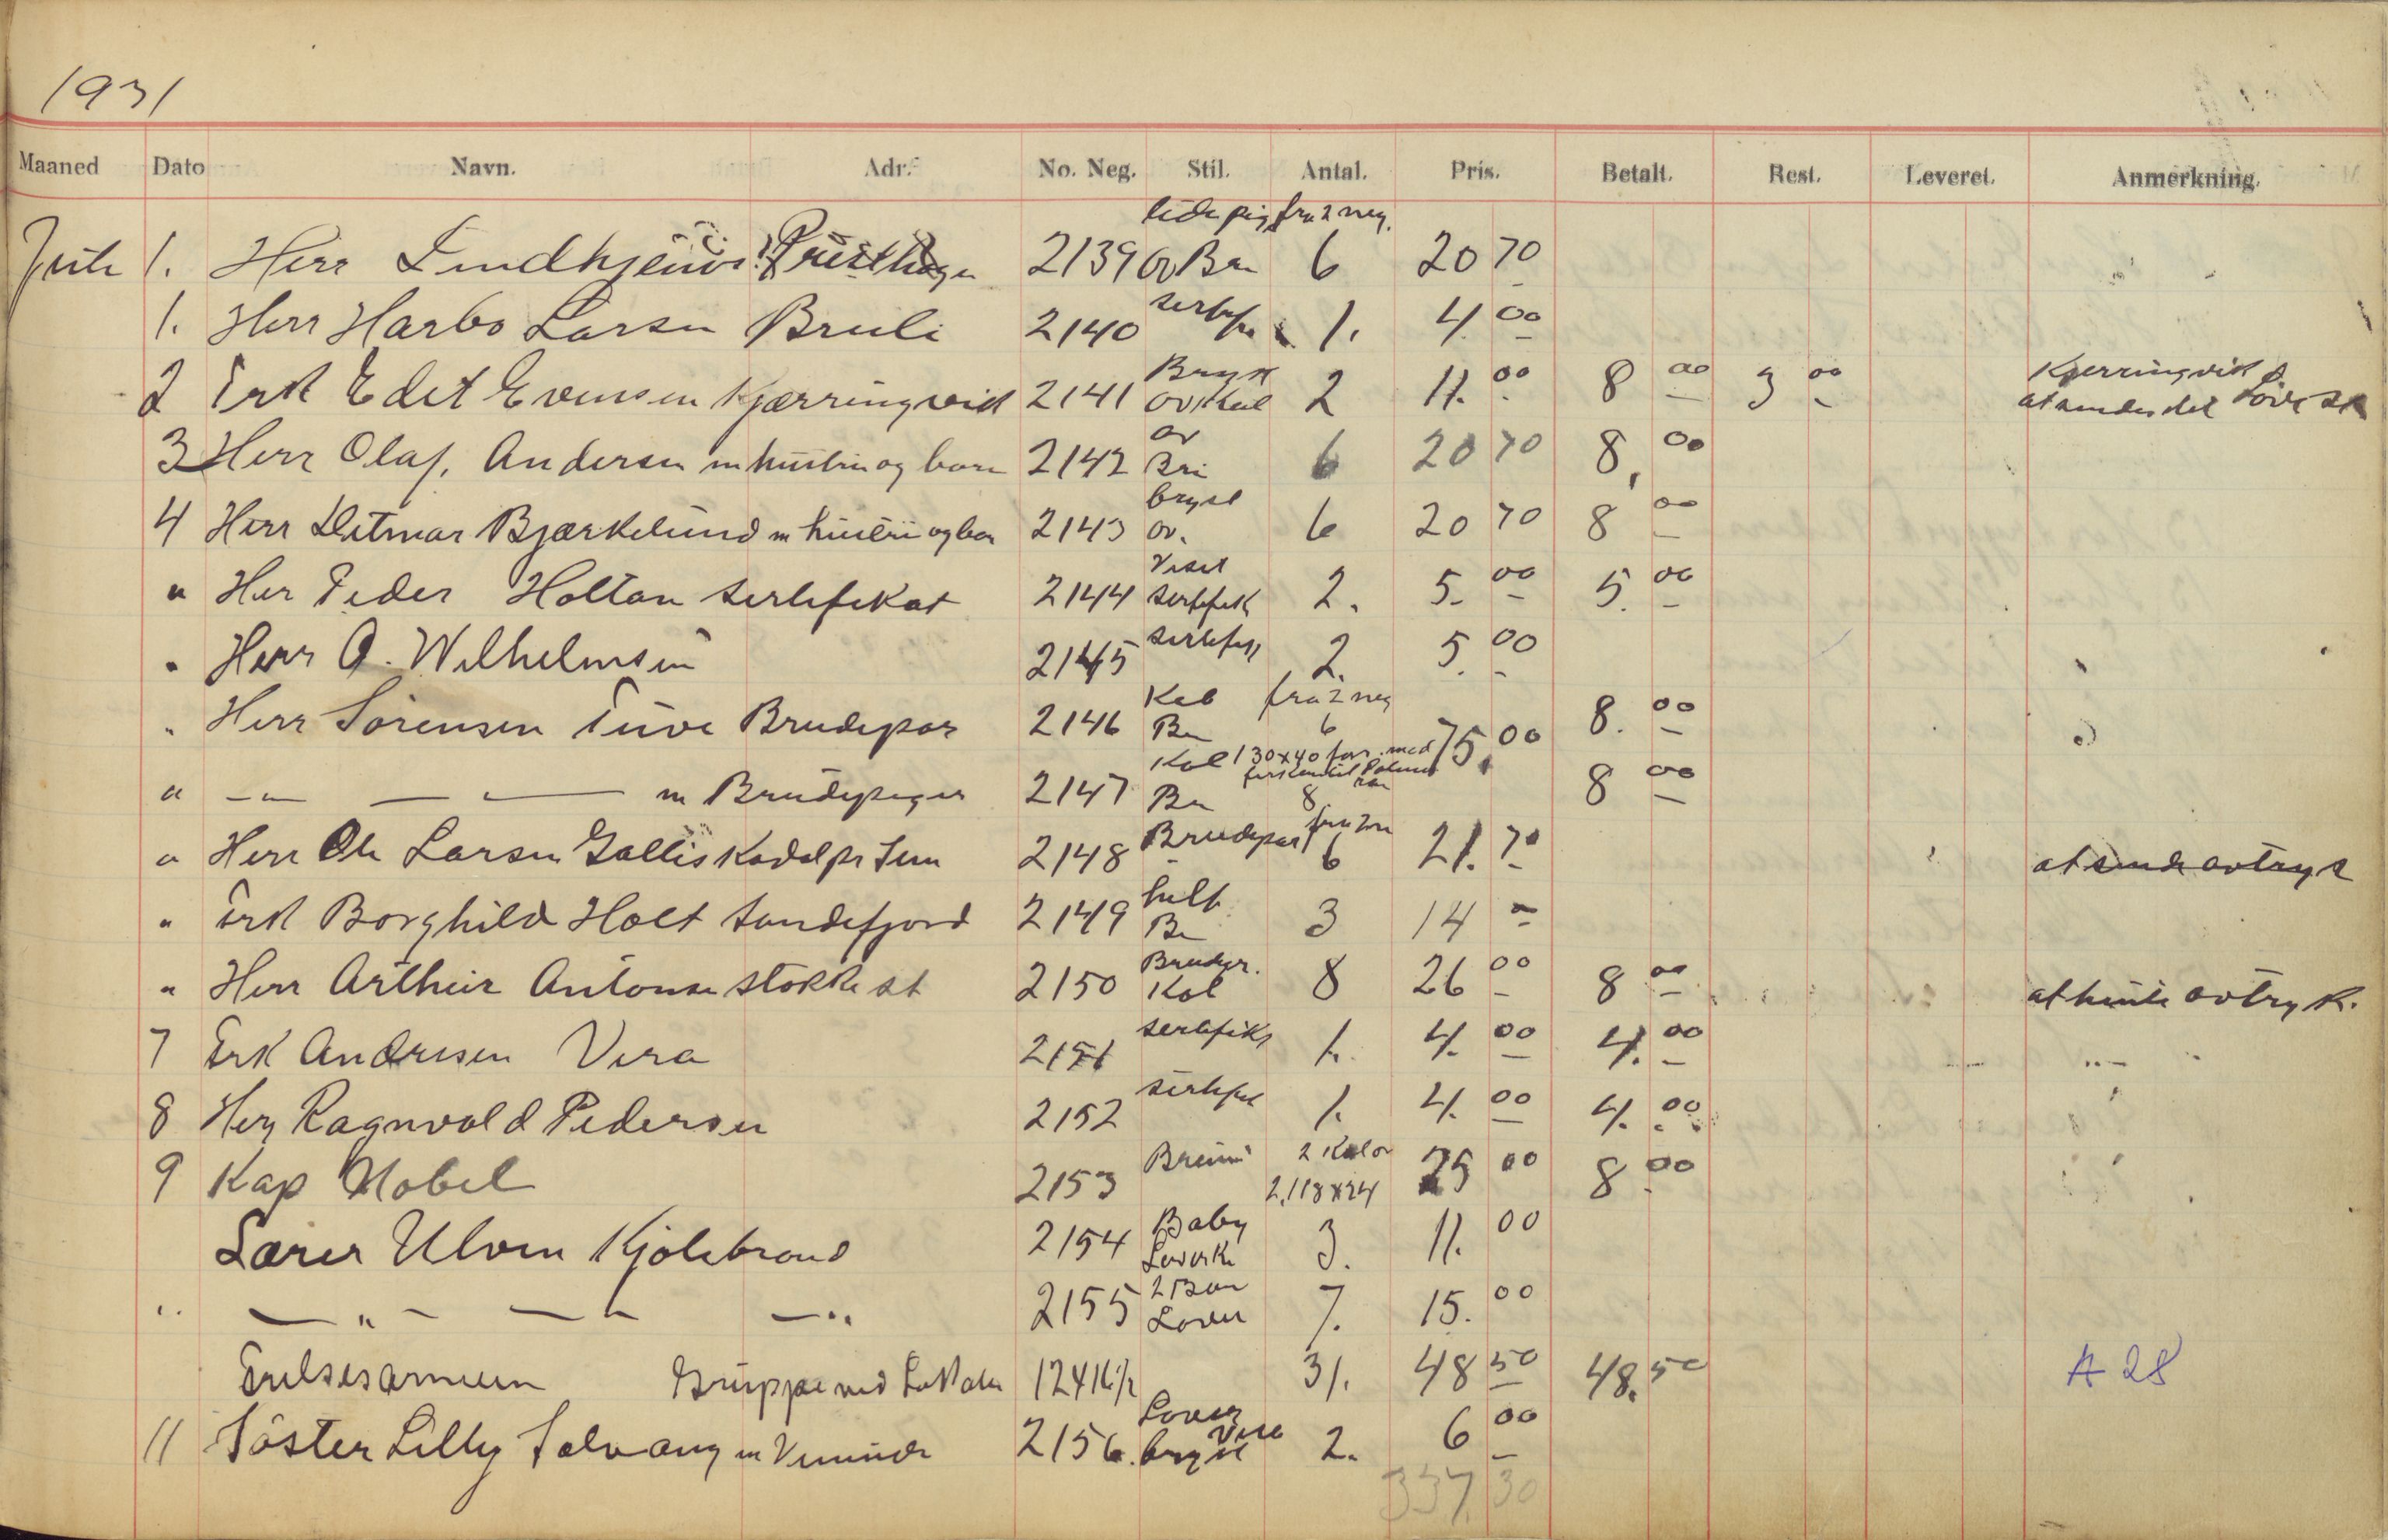 1931
Maaned Dato Navn. Adr. No. Neg. Stil. Antal. Pris. Betalt. Rest. Leveret. Anmerkning.
fra 2 neg.
1. Herr 2139 Ov Br 6 20 70
1. Herr Harbo Larsen Bruli 2140 1. 4 00
2 Frk Edet Evensen Kjærringvik 2141 Bryst ov. Kol 2 11.00 8 00 3 00 Kjerringvik
3 Herr Olaf. Andersen m hustru og barn 2142 ov 6 20 70 8,00
4 Herr Ditmar Bjærkelund m hustru og barn 2143 bryst ov. 6 20 70 8 00
" Her Peder Holtan sertefekat 2144 Visit sertefek 2. 5.00 5.00
" Herr A. Wilhelmsen 2145 sertefek 2. 5.00
" Herr Sörensen Tuve Brudepar 2146 Kab Br fra 2 neg 6 75.00 8.00
" — — — m Brudepiger 2147 Kol Br 1 30x40 for. med 8 8 00
" Herr Ole Larsen Gallis Kodalpr Sem 2148 Brudepar 6 21.70 at sende avtryk
" Frk Borghild Holt Sandefjord 2149 helt Br 3 14 -
" Herr Arthur Antonsen Stokke st 2150 Kol 8 26 00 8 00 at hente avtryk.
7 Frk Andresen Vera 2151 sertefik 1. 4.00 4.00
8 Her Ragnvald Pedersen 2152 sertefik 1. 4.00 4.00
9 Kap Nobel 2153 2 Kol ov 2.118x24 25 00 8.00
Lærer Ulven Kjölebrand 2154 Baby 3. 11.00
" — " — — " 2155 2 Barn 7. 15.00
Frelsesarmeen Gruppe ved Lokalet 12x16½ 31. 48 50 48.50 A 28
11 Söster Lilly Solvang m Veninde 2156. Visit bryst 2. 6 00
337.30